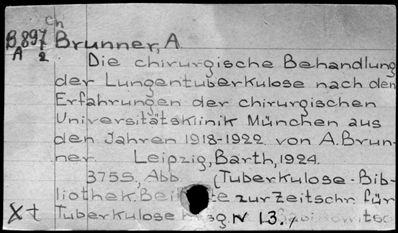 Ch
B.897 Brunner, A.
A 2
Die chirurgische Behandlung
der Lungentuberkulose nach den
Erfahrungen der chirurgischen
Universitätsklinik München aus
den Jahren 1918-1922 von A. Brun-
ner. Leipzig, Barth, 1924.
375S., Abb. (Tuberkulose-Bib-
liothek. Bei te zur Zeitschr. für
X t Tuberkulose N 13.